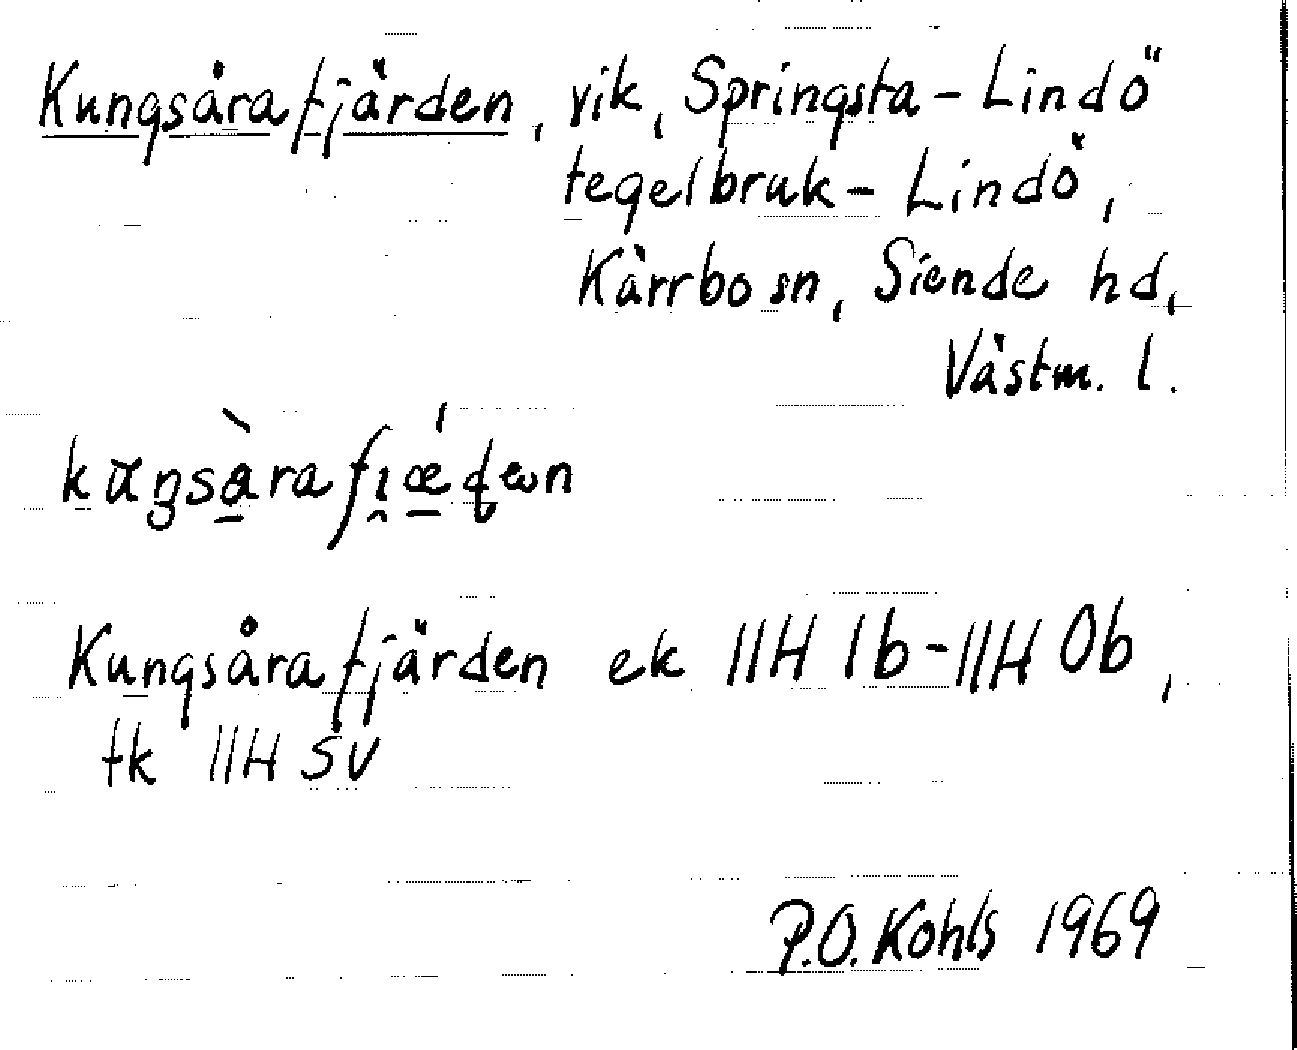 Kungsårafjärden, vik, Springsta - Lindö
tegelbruk - Lindö,
Kärrbo sn, Siende hd,
Västm. l.
Kungsårafjärden ek 11H 1b - 11H 0b,
tk 11H SV
P.O. Kohls 1969